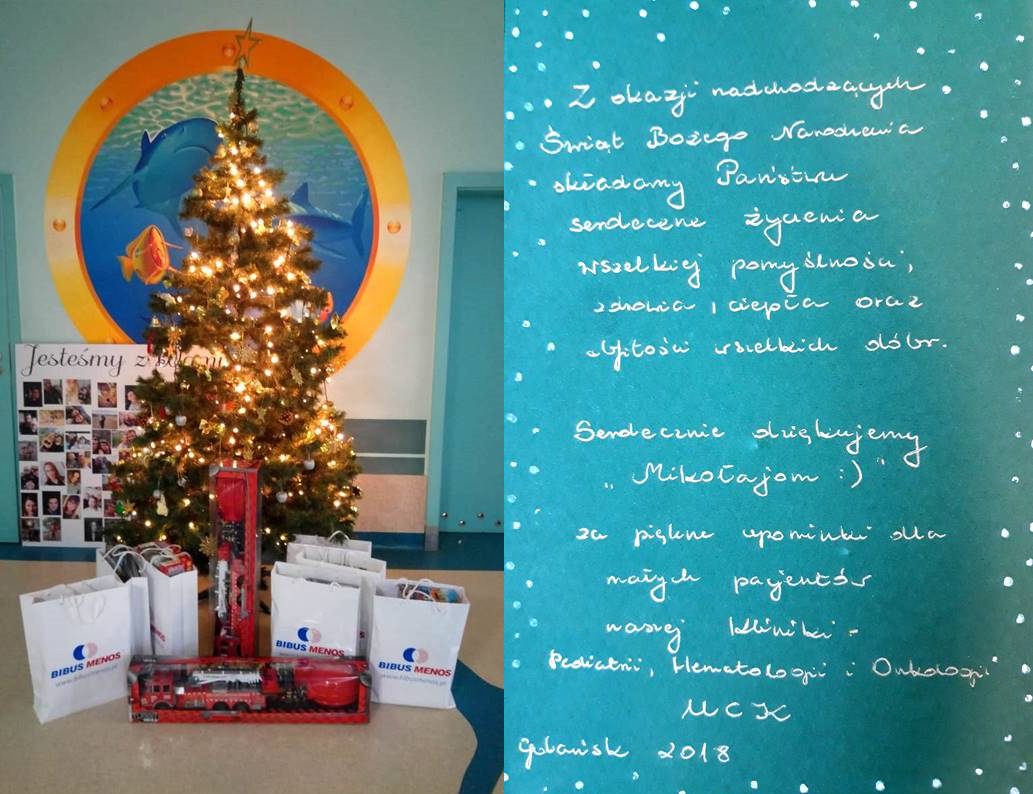 Jesteśmy z
BIBUS MENOS
www.bibusmenos.pl
BIBUS MENOS
BIBUS MENOS
www.bibusmenos.pl
Z okazji nadchodzących
Świąt Bożego Narodzenia
składamy Państwu
serdeczne życzenia
wszelkiej pomyślności,
zdrowia, ciepła oraz
obfitości wszelkich dóbr.
Serdecznie dziękujemy
„Mikołajom :)"
za piękne upominki dla
małych pacjentów
naszej Kliniki -
Pediatrii, Hematologii i Onkologii
UCK
Gdańsk 2018